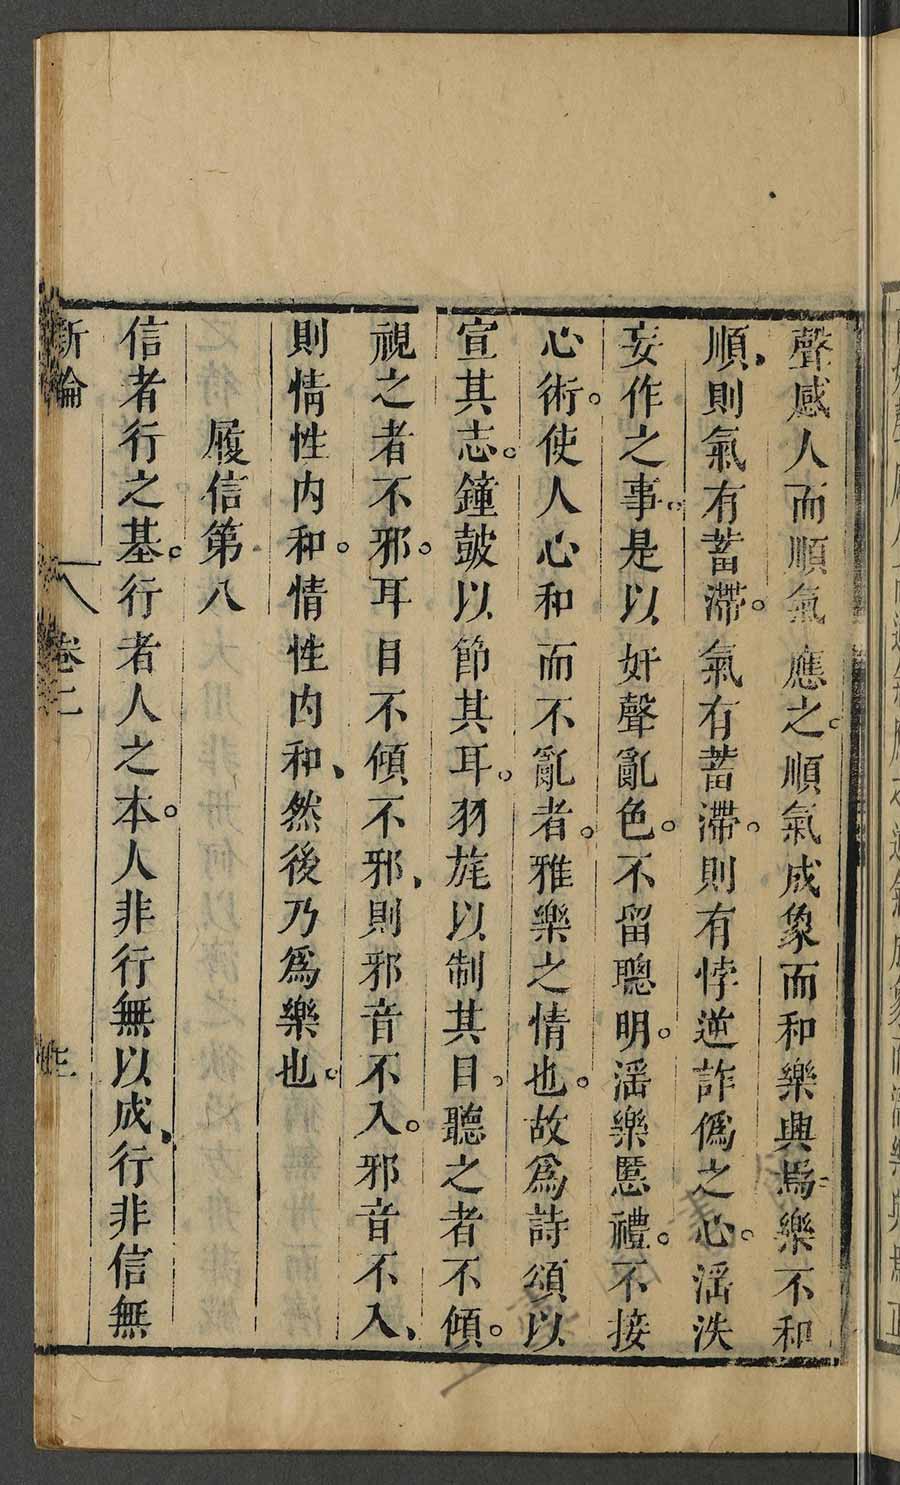 聲感人而順氣應之。順氣成象而和樂興焉。樂不和
順、則氣有蓄滯。氣有蓄滯。則有悖逆詐僞之心。滛泆
妄作之事。是以奸聲亂色。不留聰明。滛樂慝禮。不接
心術。使人心和而不亂者。雅樂之情也。故爲詩頌以
宣其志。鐘鼓以節其耳。羽旄以制其目。聽之者不傾。
視之者不邪。耳目不傾不邪、則邪音不入。邪音不入、
則情性内和。情性内和、然後乃爲樂也。
履信第八
信者行之基。行者人之本。人非行無以成、行非信無
新論 卷二